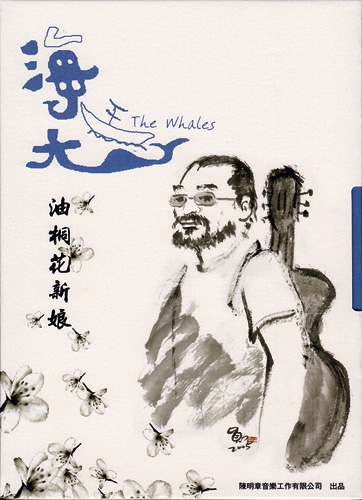 海
大
The Whales
油桐花新娘
2005
陳明章音樂工作有限公司 出品